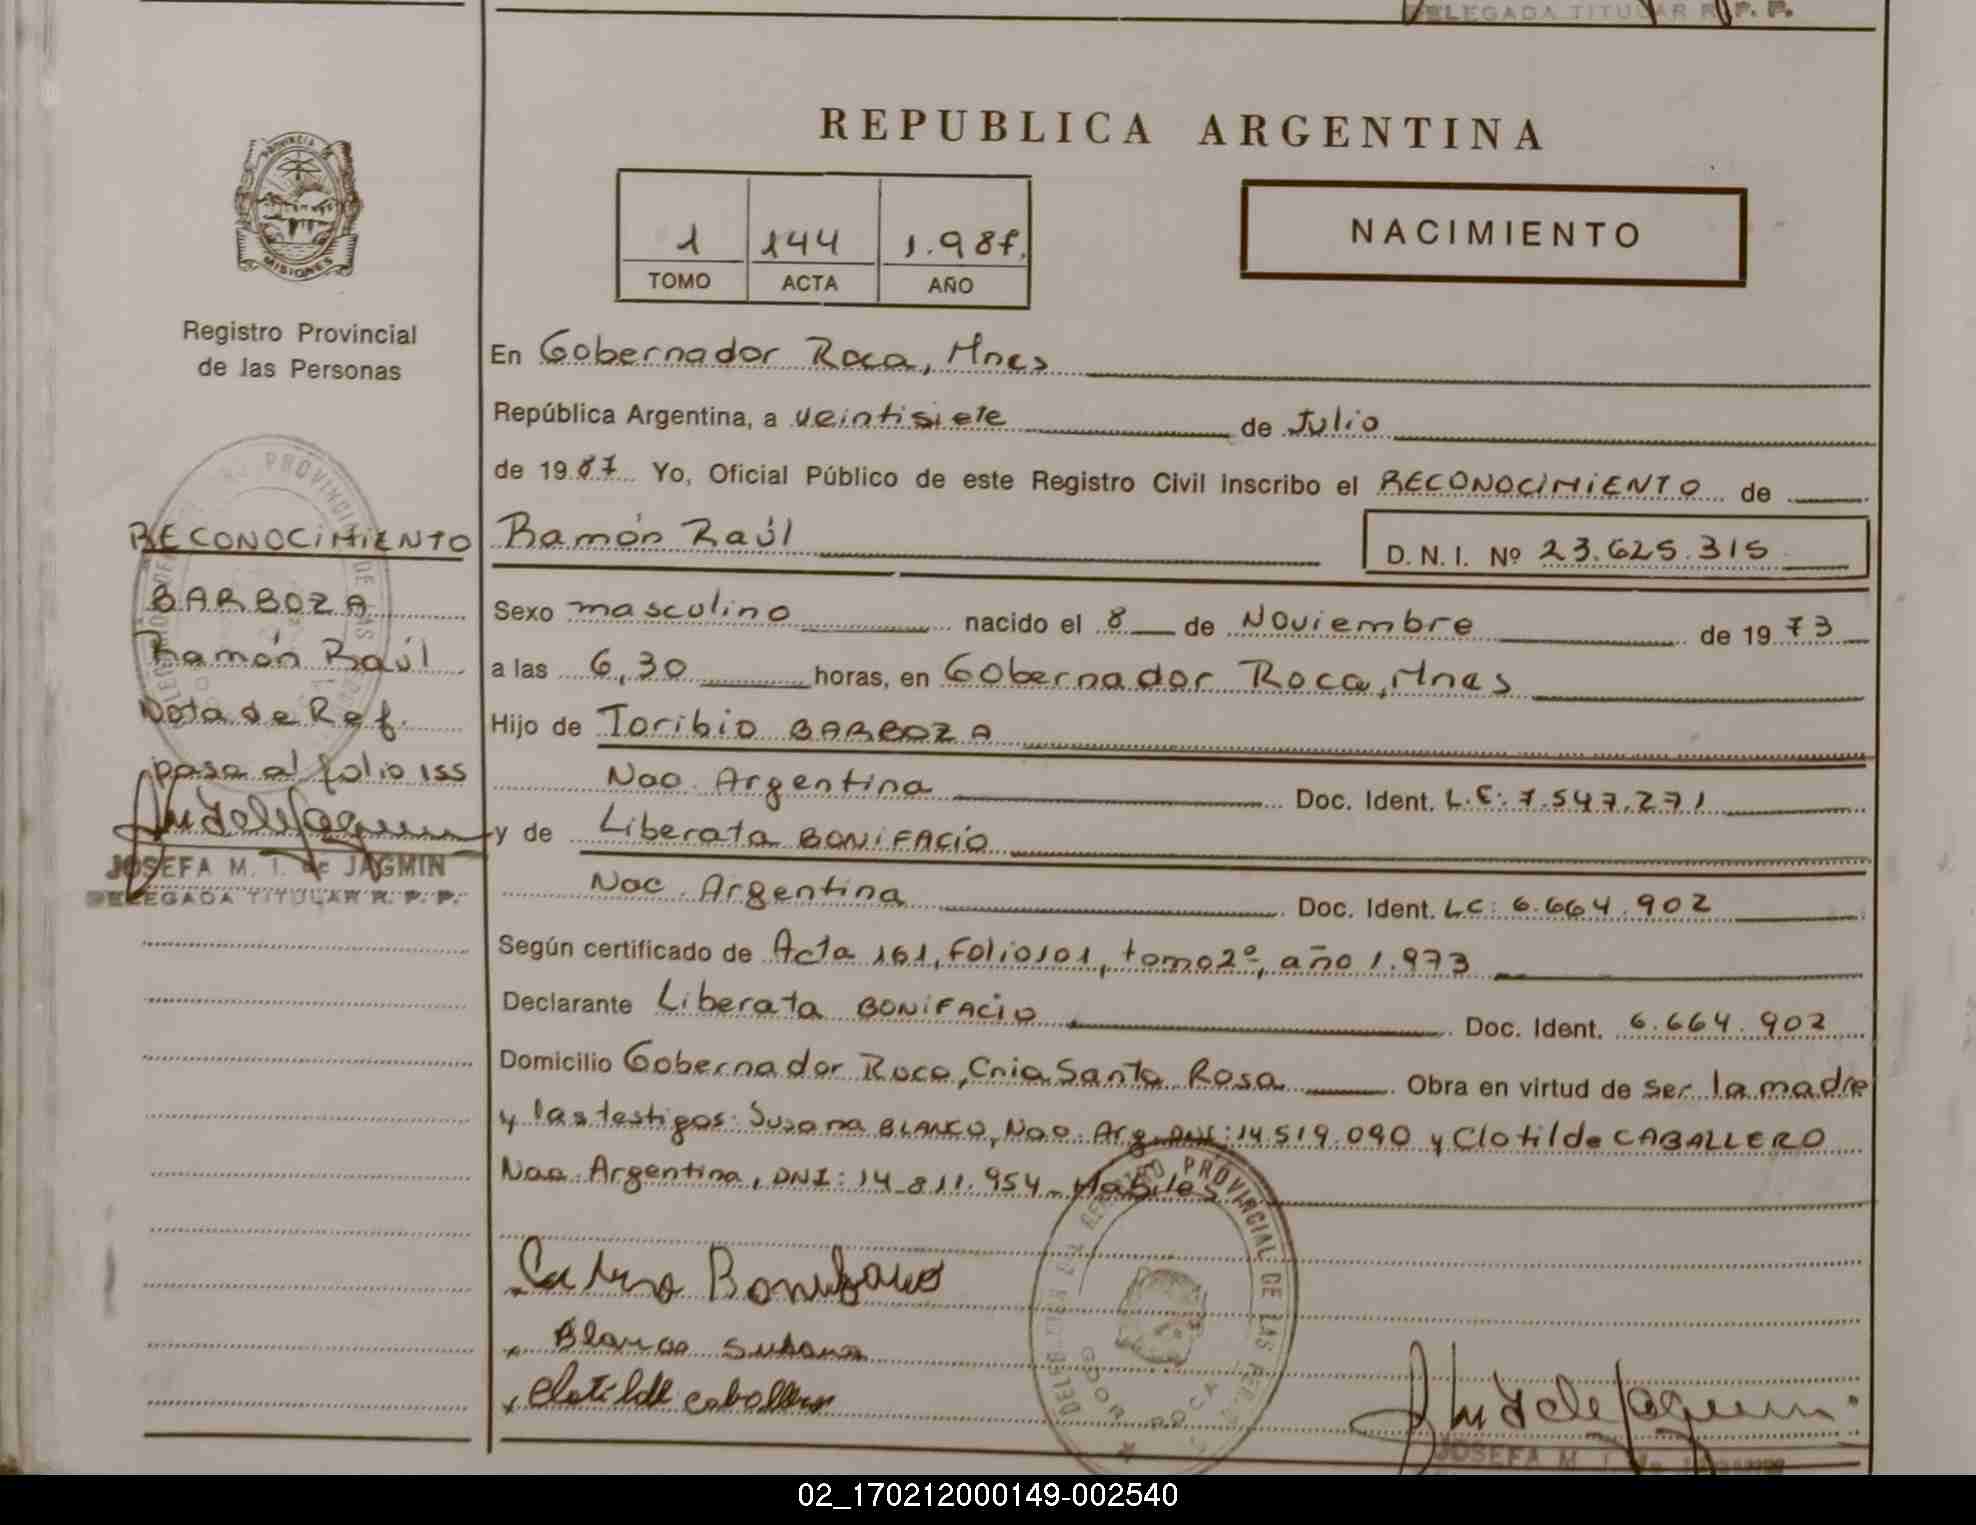 DELEGADA TITULAR R. P. P.
REPUBLICA ARGENTINA
PROVINCIA DE
MISIONES
1 144 1.987.
TOMO ACTA AÑO
NACIMIENTO
Registro Provincial
de las Personas
En Gobernador Roca, Mnes
República Argentina, a veintisiete de Julio
de 1987 Yo, Oficial Público de este Registro Civil inscribo el RECONOCIMIENTO de
Ramón Raúl D. N. I. Nº 23.625.315
Sexo masculino nacido el 8 de Noviembre de 1973
a las 6,30 horas, en Gobernador Roca, Mnes
Hijo de Toribio BARBOZA
Nac. Argentina Doc. Ident. L.E: 7.547.271
y de Liberata BONIFACIO
Nac. Argentina Doc. Ident. LC: 6.664.902
Según certificado de Acta 161, Folio 101, tomo 2º, año 1.973
Declarante Liberata BONIFACIO Doc. Ident. 6.664.902
Domicilio Gobernador Roca, Cnia Santa Rosa Obra en virtud de ser la madre
y las testigos: Susana BLANCO, Nac. Arg. DNI: 14.519.090 y Clotilde CABALLERO
Nac. Argentina, DNI: 14.811.954 - Habiles
Bonifacio
Blanco Susana
Clotilde Caballero
REGISTRO PROVINCIAL DE LAS
GDOR. ROCA
JOSEFA M. I. de JAGMIN
RECONOCIMIENTO
BARBOZA
Ramón Raúl
Nota de Ref.
pasa al folio 155
JOSEFA M. I. de JAGMIN
DELEGADA TITULAR R. P. P.
02_170212000149-002540